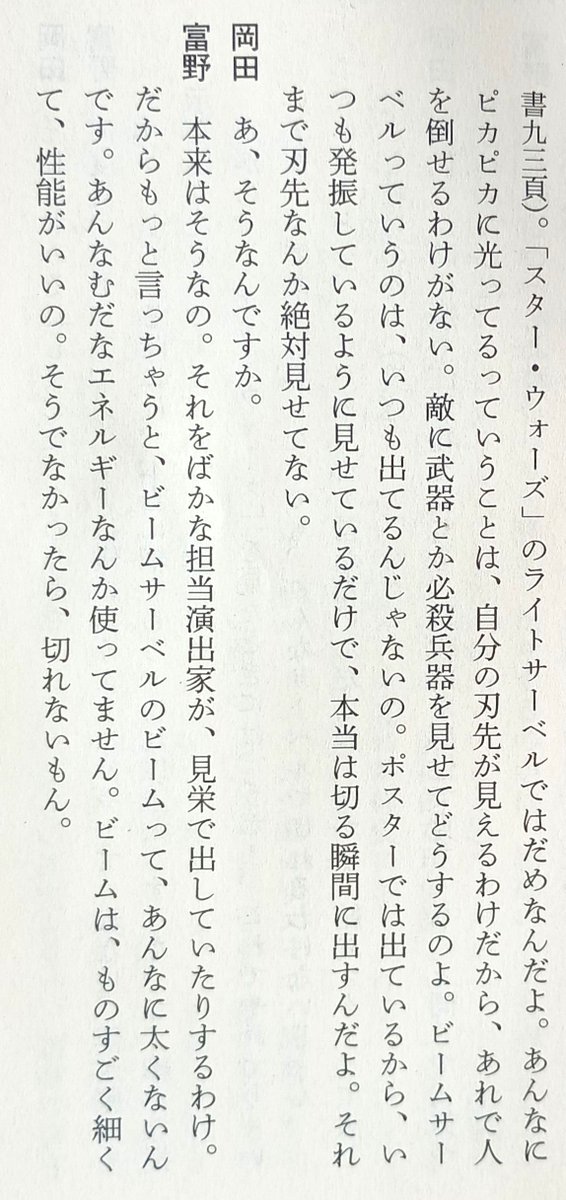 書九三頁)。「スター・ウォーズ」のライトサーベルではだめなんだよ。あんなに
ピカピカに光ってるっていうことは、自分の刃先が見えるわけだから、あれで人
を倒せるわけがない。敵に武器とか必殺兵器を見せてどうするのよ。ビームサー
ベルっていうのは、いつも出てるんじゃないの。ポスターでは出ているから、い
つも発振しているように見せているだけで、本当は切る瞬間に出すんだよ。それ
まで刃先なんか絶対見せてない。
岡田　あ、そうなんですか。
富野　本来はそうなの。それをばかな担当演出家が、見栄で出していたりするわけ。
だからもっと言っちゃうと、ビームサーベルのビームって、あんなに太くないん
です。あんなむだなエネルギーなんか使ってません。ビームは、ものすごく細く
て、性能がいいの。そうでなかったら、切れないもん。